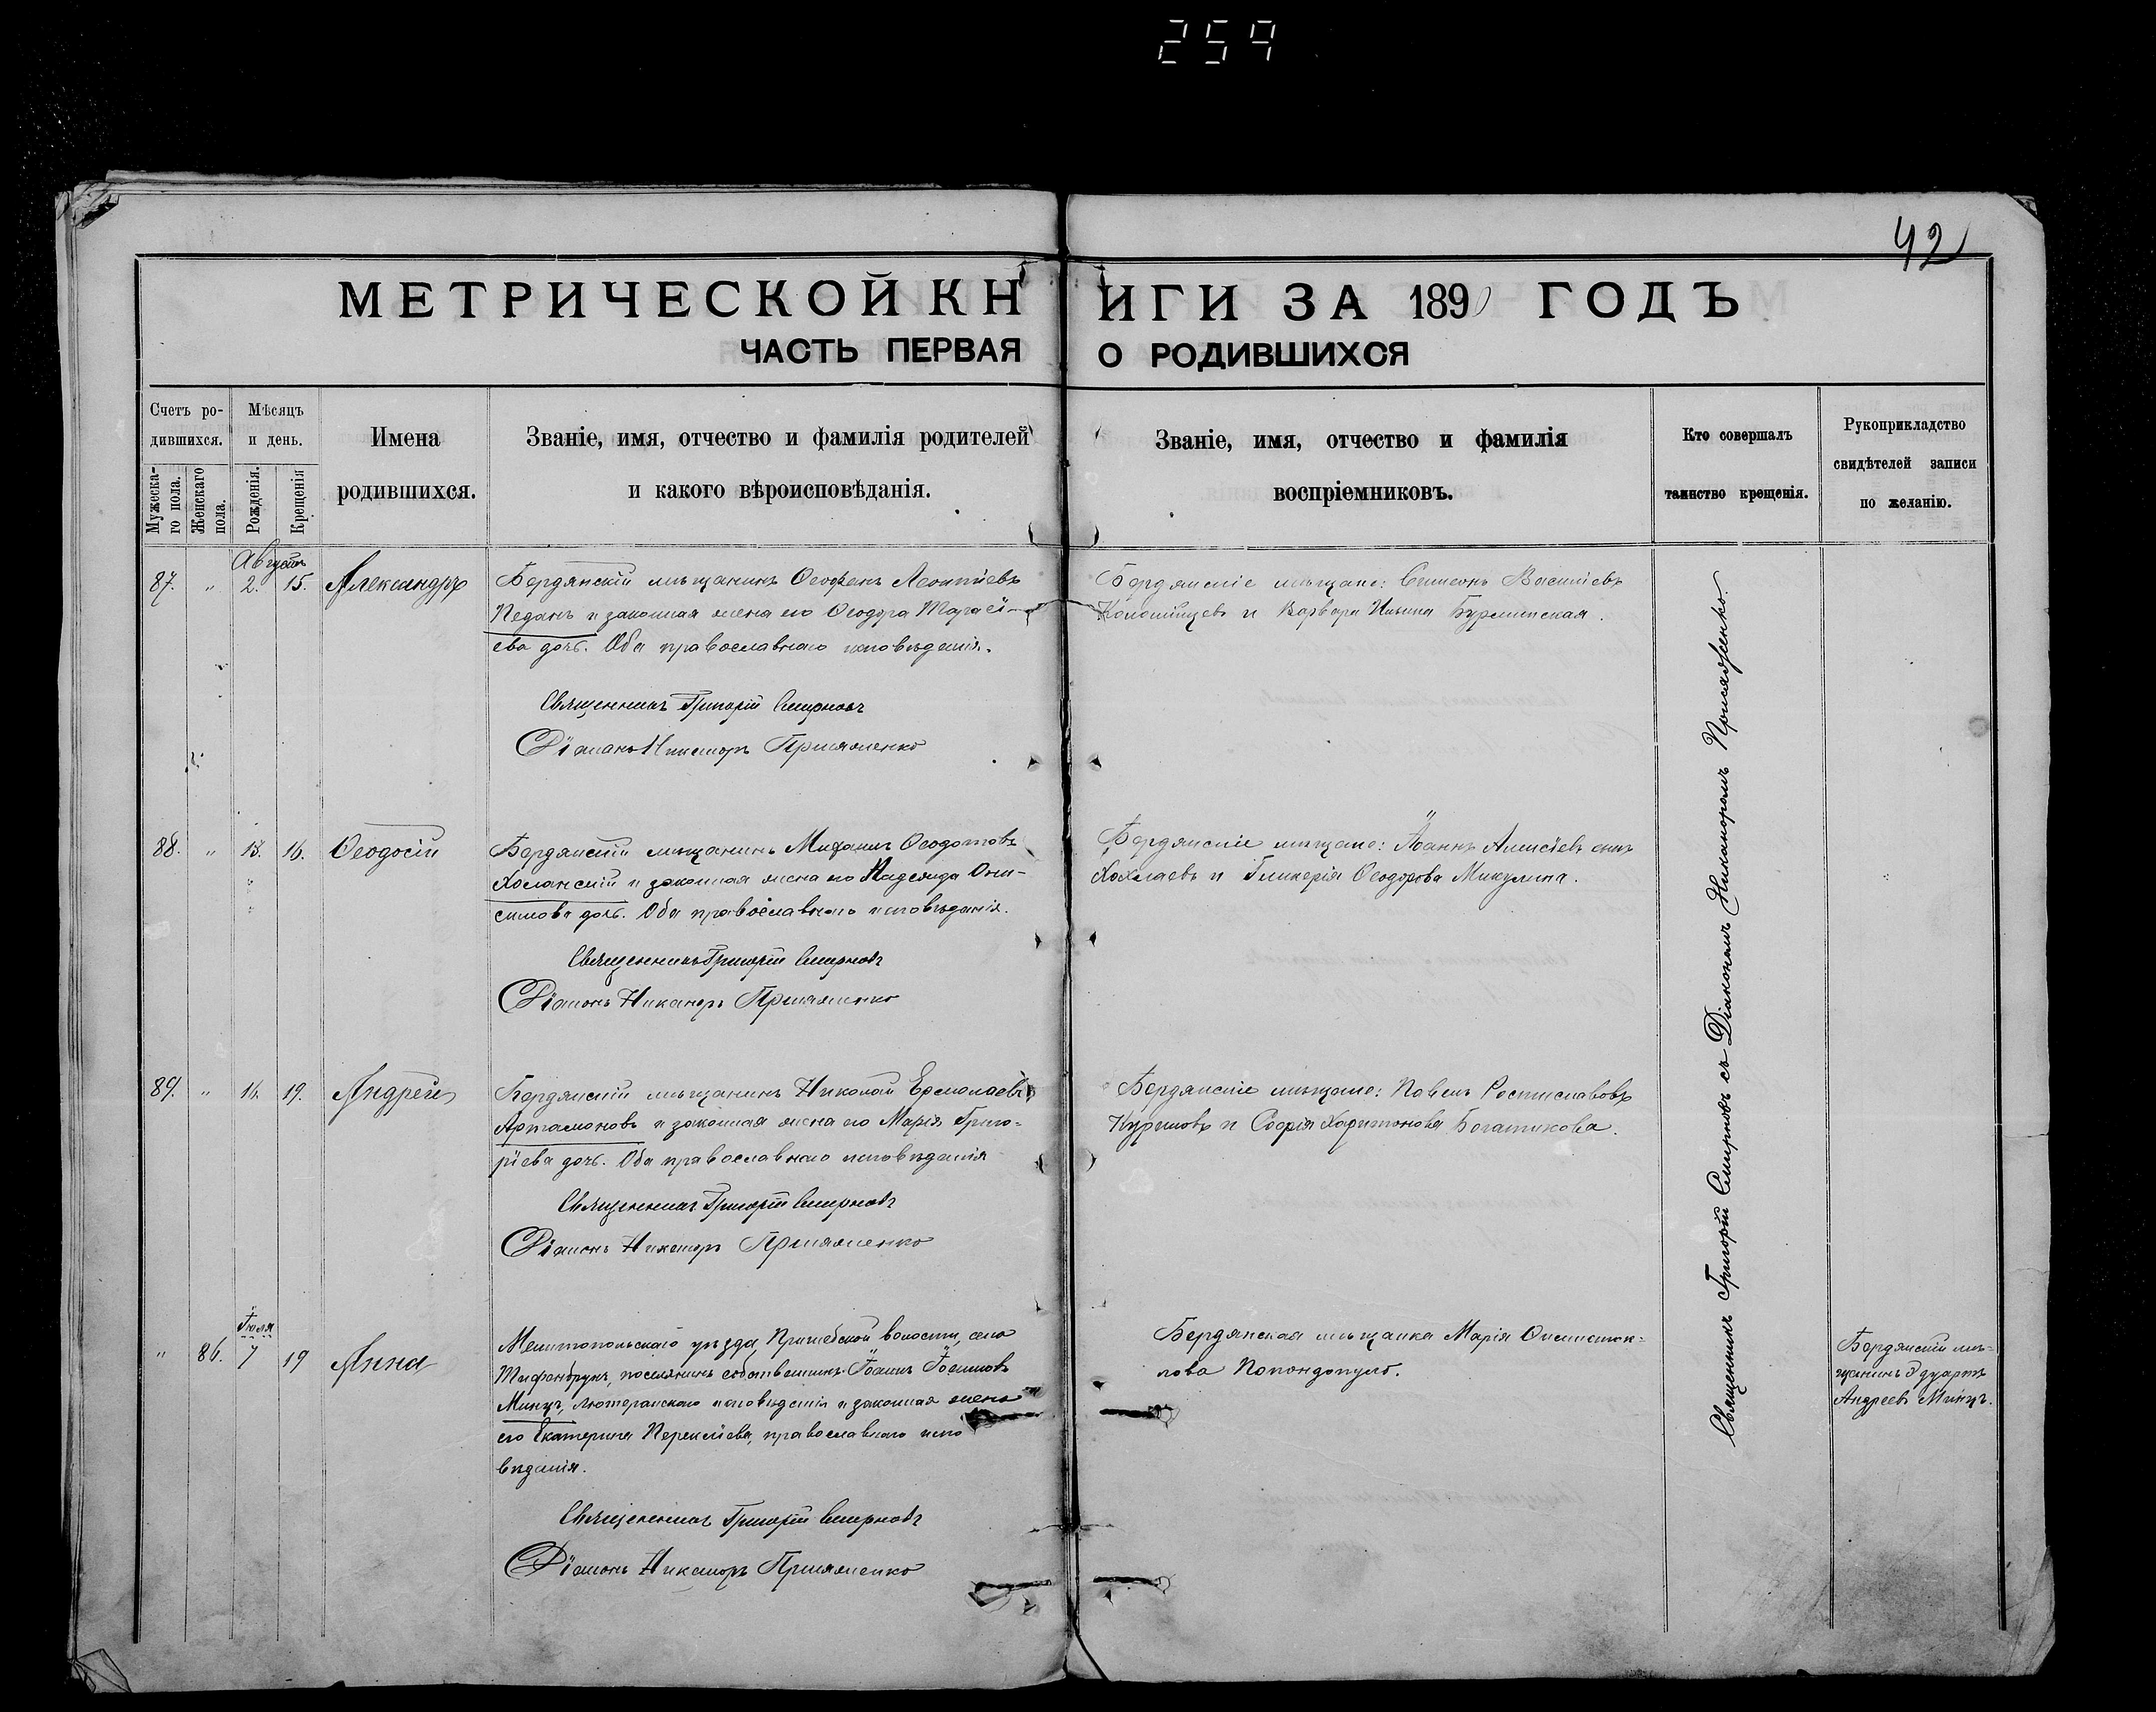 259
42
МЕТРИЧЕСКОЙ КНИГИ ЗА 1890 ГОДЪ
ЧАСТЬ ПЕРВАЯ О РОДИВШИХСЯ
Счетъ ро-
дившихся.
Мужеска-
го пола.
Женскаго
пола.
Мѣсяцъ
и день.
Рожденія.
Крещенія
Имена
родившихся.
Званіе, имя, отчество и фамилія родителей
и какого вѣроисповѣданія.
Званіе, имя, отчество и фамилія
воспріемниковъ.
Кто совершалъ
таинство крещенія.
Рукоприкладство
свидѣтелей записи
по желанію.
Августъ
87. " 2. 15. Александръ
Бердянскій мѣщанинъ Ѳеофанъ Леонтіевъ
Педанъ и законная жена его Ѳеодора Тарасі-
ева дочь. Оба православнаго исповѣданія.
Священникъ Григорій Смирновъ
Діаконъ Никаноръ Присяженко
Бердянскіе мѣщане: Симеонъ Василіевъ
Коломійцевъ и Варвара Ильина
88. " 13. 16. Ѳеодосій
Бердянскій мѣщанинъ Ѳеодотовъ
и законная жена его Надежда Они-
симова дочь. Оба православнаго исповѣданія.
Священникъ Григорій Смирновъ
Діаконъ Никаноръ Присяженко
Бердянскіе мѣщане: Іоаннъ Алексіевъ сынъ
Хохлаевъ и Гликерія Ѳеодорова Микулина.
89. " 16. 19. Андрей
Бердянскій мѣщанинъ Николай Ермолаевъ
Артамоновъ и законная жена его Марія Григо-
ріева дочь. Оба православнаго исповѣданія
Священникъ Григорій Смирновъ
Діаконъ Никаноръ Присяженко
Бердянскіе мѣщане: Павелъ Ростиславовъ
Куриловъ и Софія Харитонова Богатикова.
Іюля
" 86. 7 19 Анна
Мелитопольскаго уѣзда Пришибской волости, села
Тифенбрунъ, поселянинъ собственникъ Іоаннъ Іоанновъ
Минцъ, лютеранскаго исповѣданія и законная жена
его Екатерина православнаго испо
вѣданія.
Священникъ Григорій Смирновъ
Діаконъ Никаноръ Присяженко
Бердянская мѣщанка Марія
Попондопуло.
Бердянскій мѣ-
щанинъ Эдуардъ
Андреевъ Минцъ.
Священникъ Григорій Смирновъ съ Діакономъ Никаноромъ Присяженко.